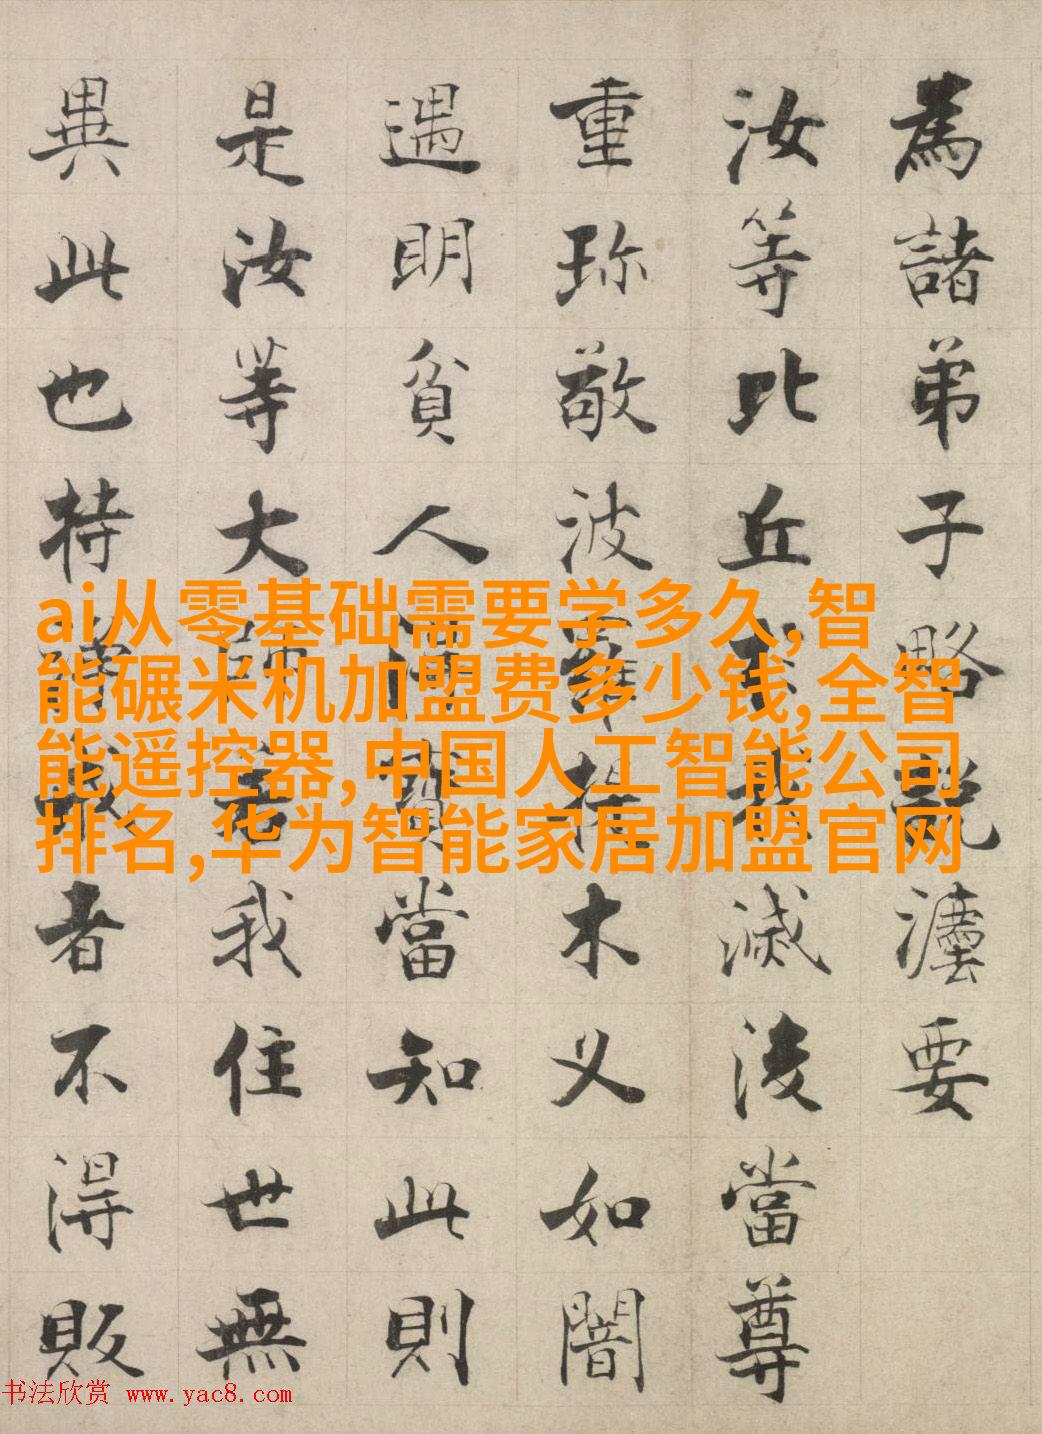 為諸弟子略説灋要
汝等比丘於我滅後當尊
重珎敬波羅提木义如闇
遇明貧人得寶當知此則
是汝等大師若我住世無
異此也持淨戒者不得販
ai从零基础需要学多久,智
能碾米机加盟费多少钱,全智
能遥控器,中国人工智能公司
排名,华为智能家居加盟官网
书法欣赏 www.yac8.com